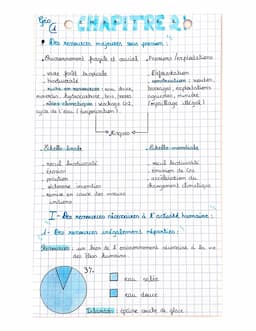 Géo
CHAPITRE 2:
• Des ressources majeures sous pression :
• Environnement fragile et crucial
- vaste forêt tropicale
- biodiversité
- riche en ressources : eau douce,
minerais, hydrocarbure, bois, terres
- rôles climatiques : stockage CO2,
cycle de l'eau (évaporation).
• Pressions / exploitations
- Déforestation
- construction : routes,
barrages, exploitations
agricoles, minière
(orpaillage illégal)
→ Risques ←
Echelle locale
- recul biodiversité
- érosion
- pollution
- remise en cause des modes
Echelle mondiale
- recul biodiversité
- émission de CO2
- accélération du
changement climatique
I - Des ressources nécessaires à l'activité humaine :
1- Des ressources inégalement réparties :
Ressources : un bien de l'environnement nécessaire à la vie
des êtres humains.
3%
eau salée
eau douce
: épaisse couche de glace.